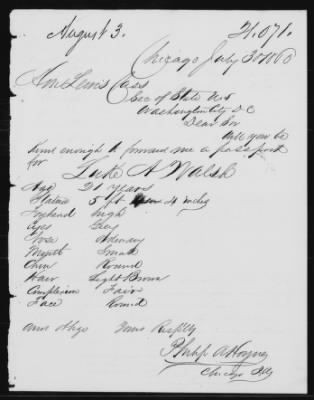 August 3.
21.071.
Chicago July 30 1860
Hon Lewis Cass
Sec of State U.S
Washington City D.C
Dear Sir
Will you be
kind enough to forward me a passport
for
Luke A Walsh
Age 21 years
Stature 5 ft 4 inches
Forehead high
Eyes Grey
Nose Ordinary
Mouth Small
Chin Round
Hair Light Brown
Complexion Fair
Face Round
and oblige Yours Resplly
Philip A Hoyne
Chicago Ills